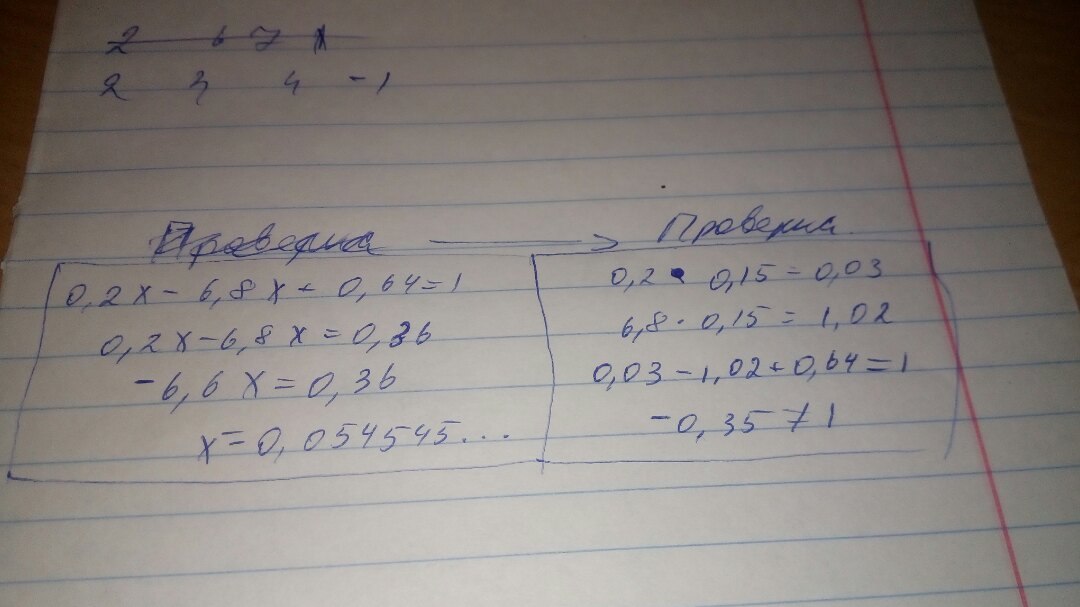 2 6 7 1
2 3 4 -1
Проверка
0,2x - 6,8x + 0,64=1
0,2x-6,8x=0,36
-6,6x=0,36
x=0,054545...
Проверка
0,2 · 0,15=0,03
6,8·0,15=1,02
0,03-1,02+0,64=1
-0,35≠1